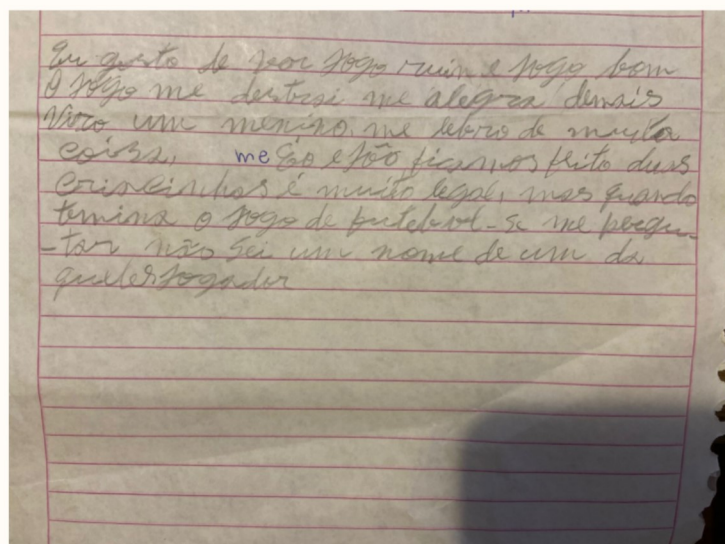 Eu gosto de ver jogo ruin e jogo bom
O jogo me destrai me alegra demais
Viro um menino, me lebro de muita
coisa, me Eo e João ficamos feito duas
criancinhas é muito legal, mas quando
temina o jogo de futebol - se me pergu-
-tar não sei um nome de um da
queles jogador